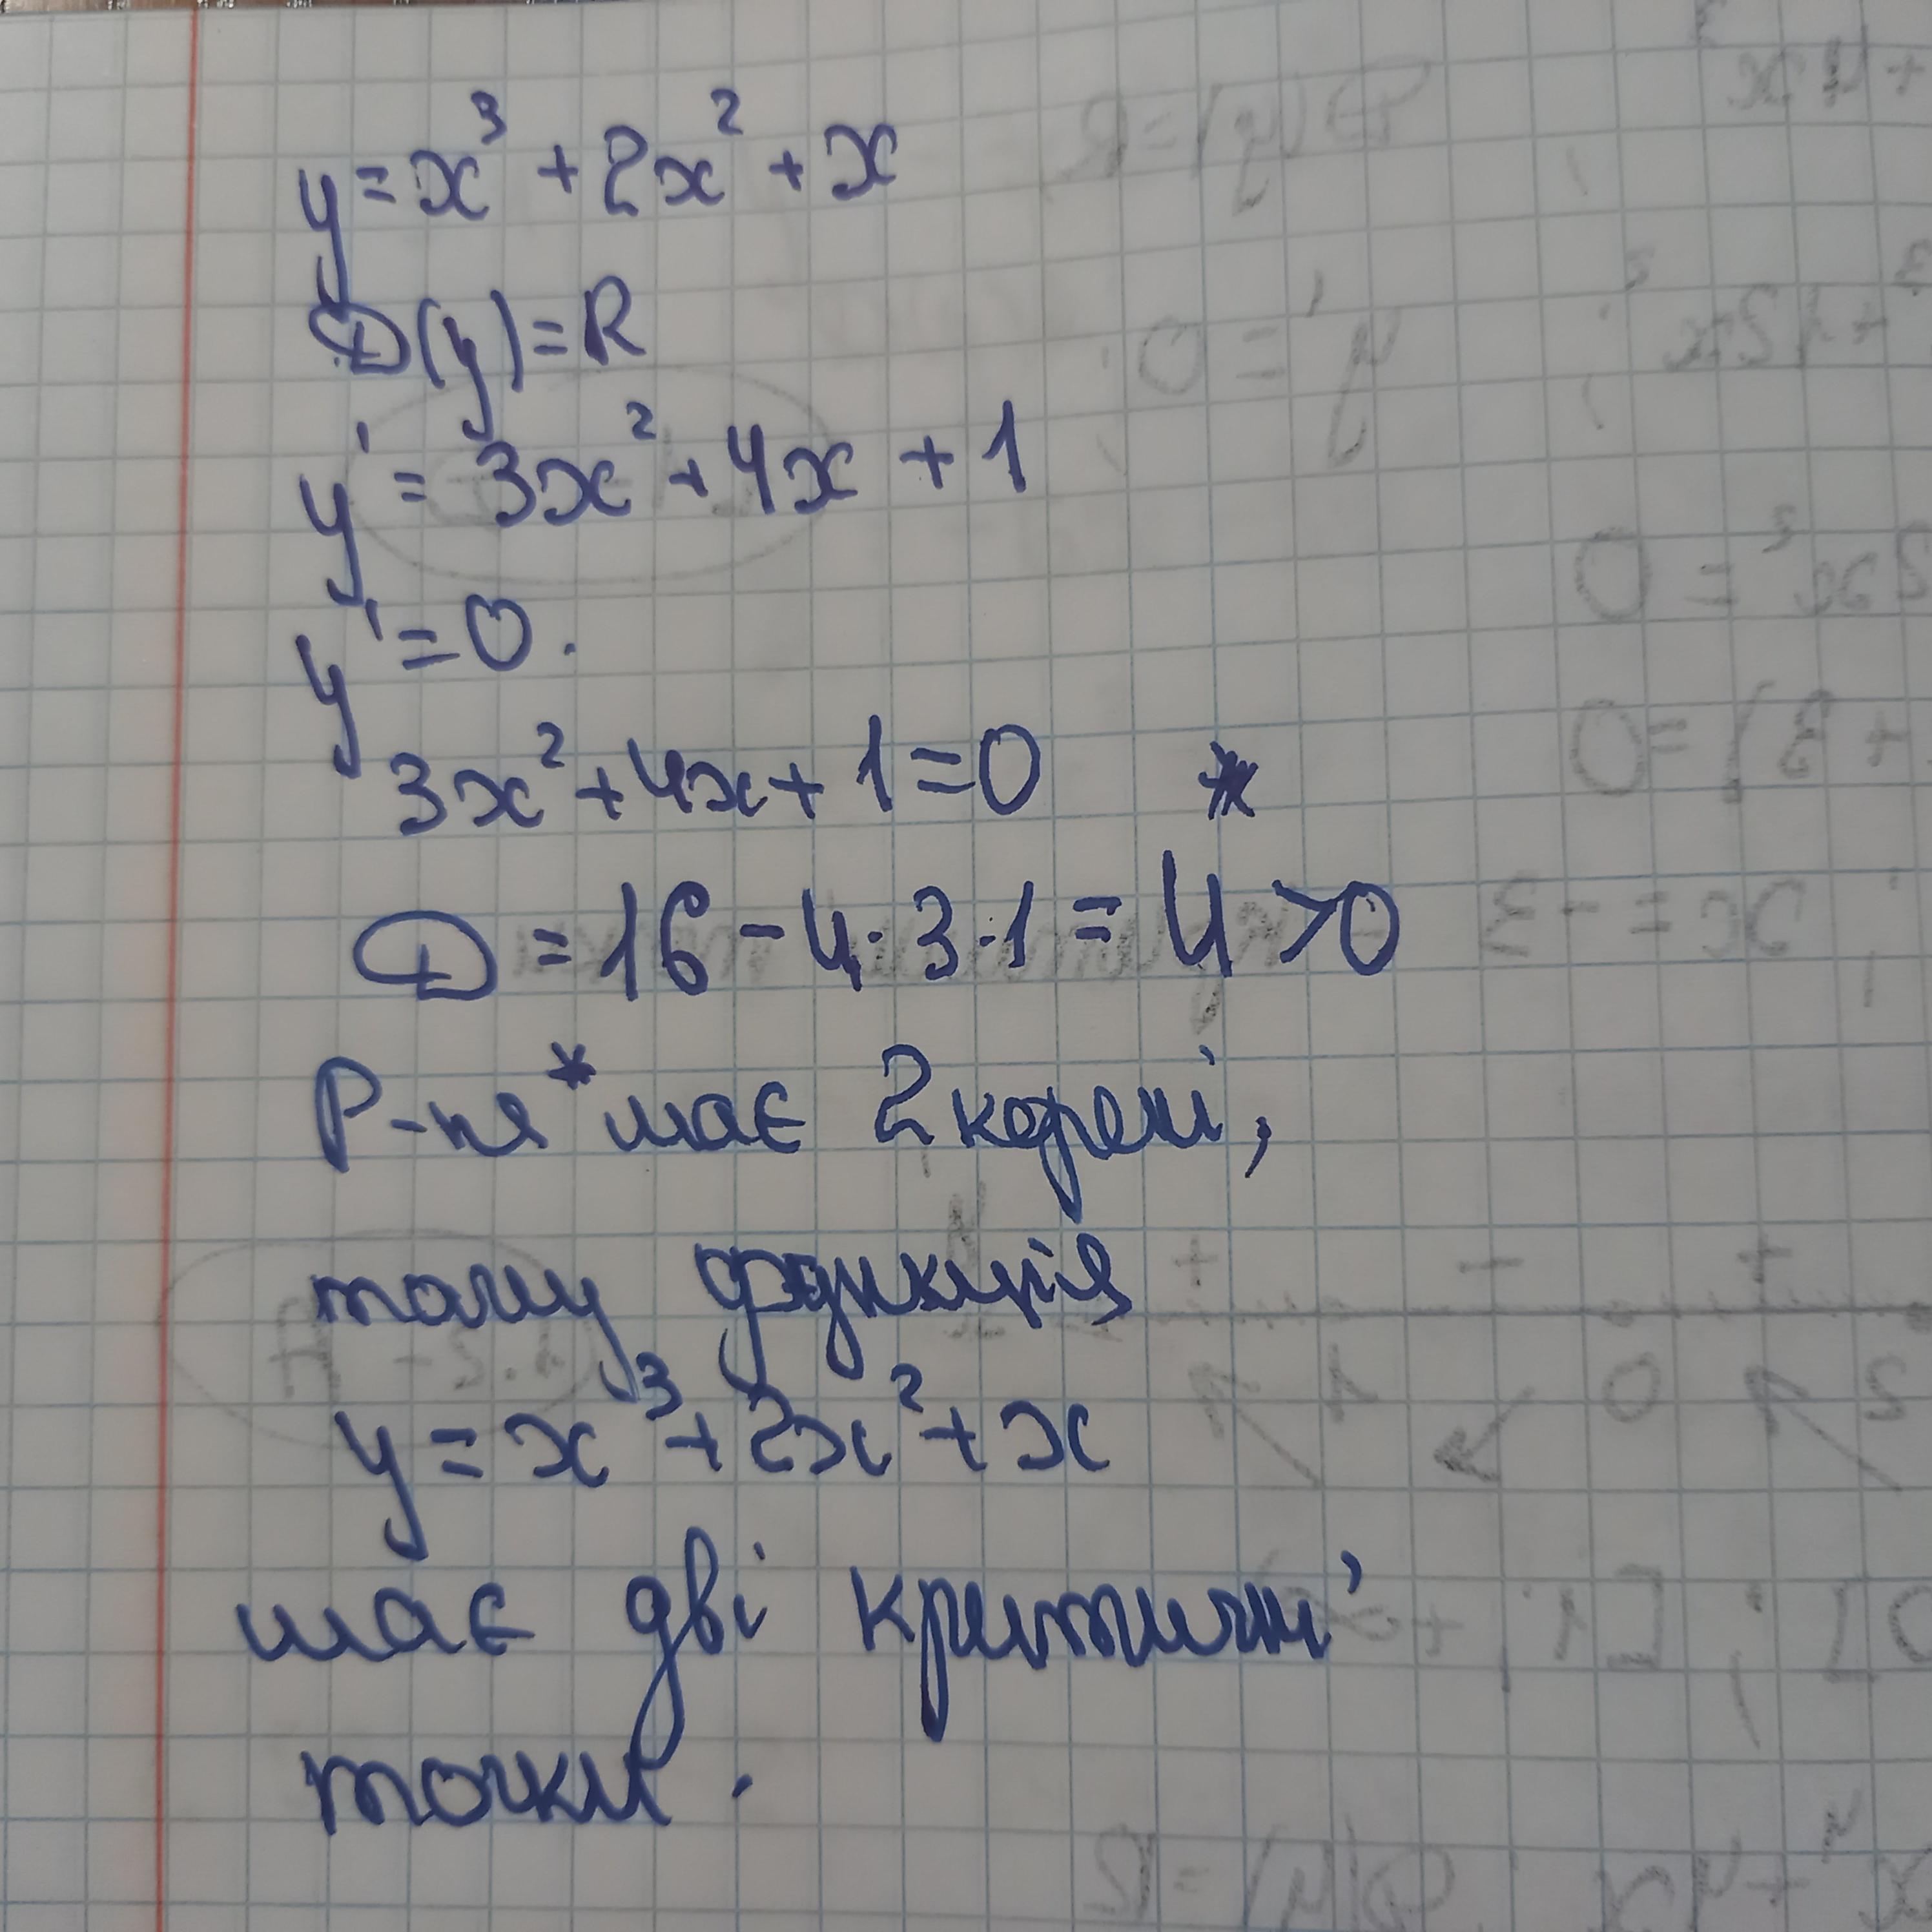 y = x³ + 2x² + x
D(y) = R
y' = 3x² + 4x + 1
y' = 0.
3x² + 4x + 1 = 0 *
D = 16 - 4·3·1 = 4 > 0
Р-ня * має 2 корені,
тому функція
y = x³ + 2x² + x
має дві критичні
точки.